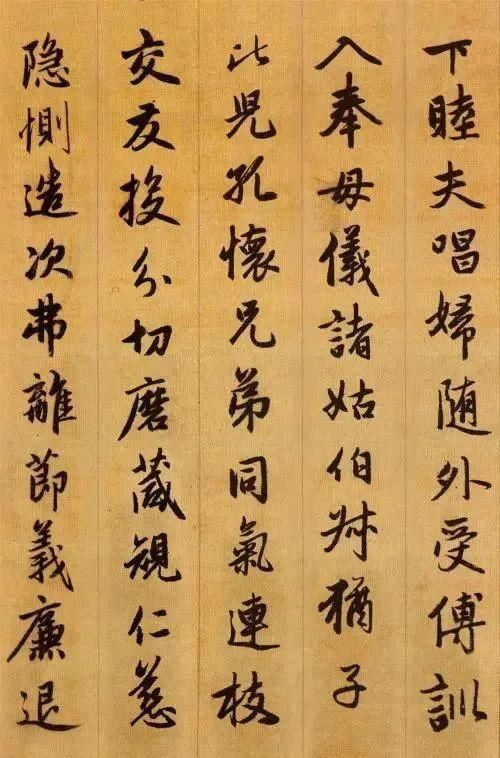 下睦夫唱婦随外受傅訓
入奉母儀諸姑伯叔猶子
比兒孔懷兄弟同氣連枝
交友投分切磨葴規仁慈
隐惻造次弗離節義廉退